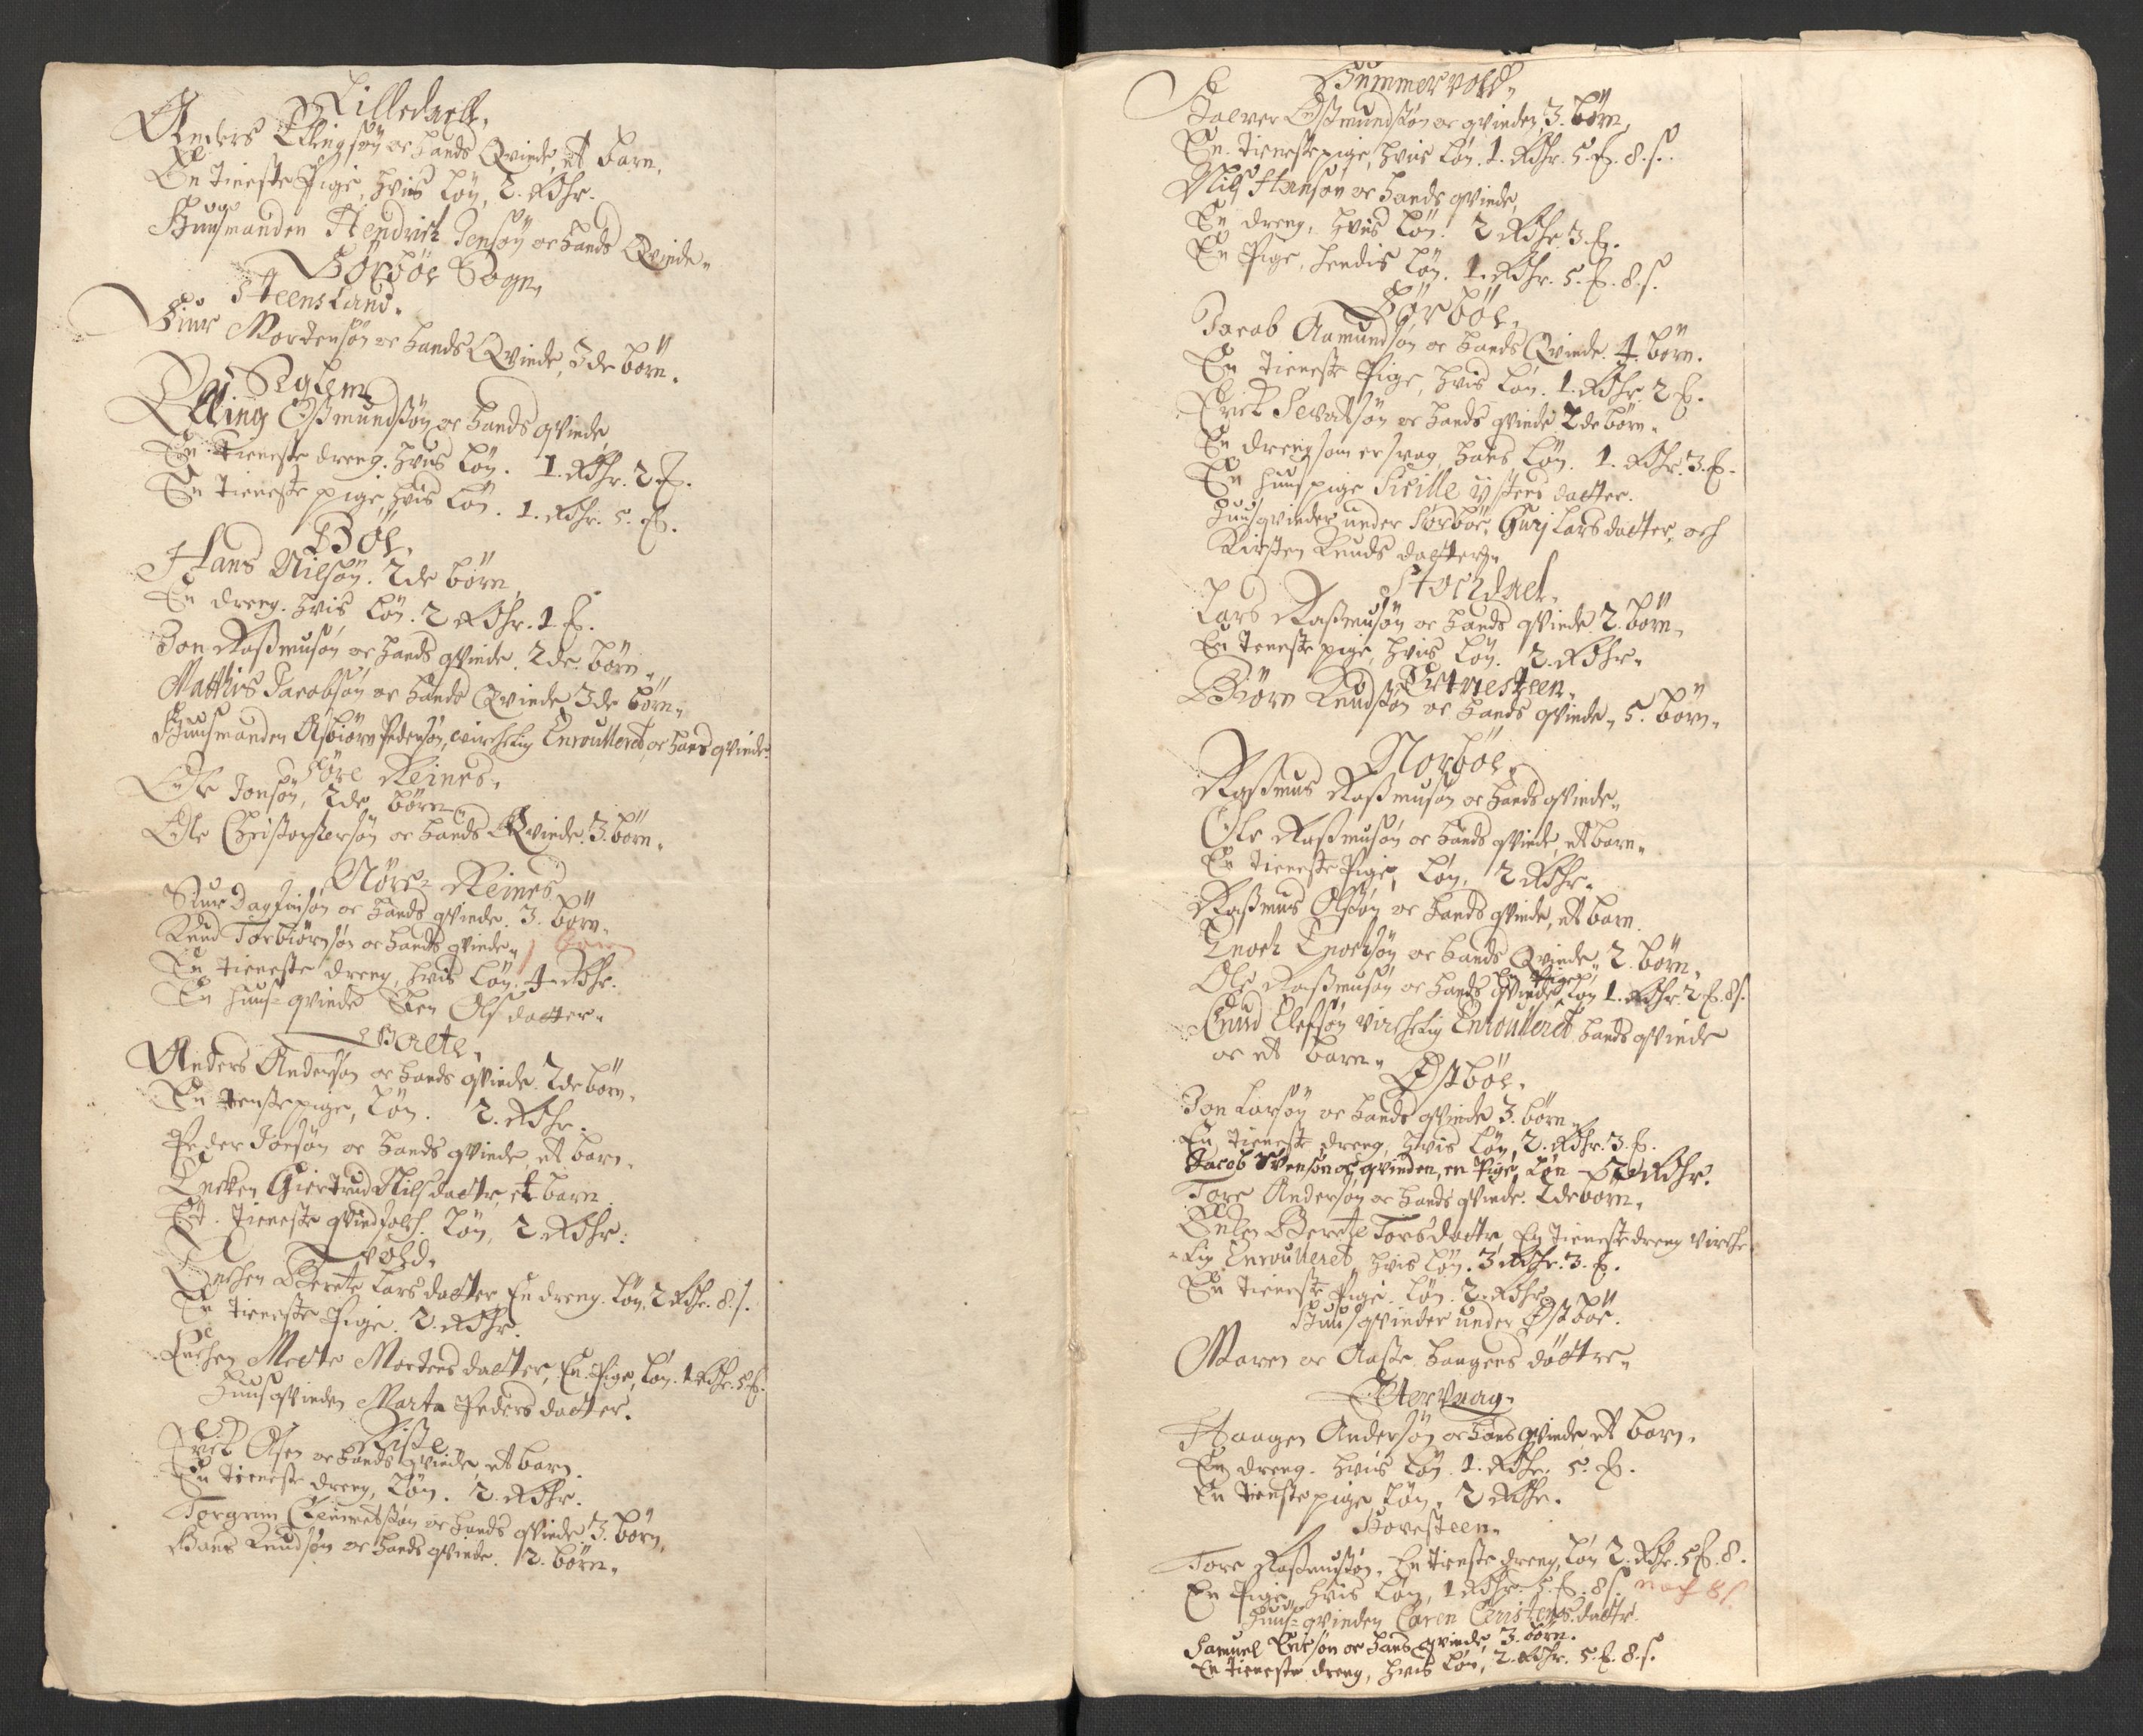 Lilledaell,
Anders Ellingsøn oc hands Qvinde, et barn,
En Tieneste Pige, hvis Løn, 2. Rdhr.
Huusmanden Hendrich Jensøn oc hands Qvinde„
Sørbøe Sogn,
Steensland.
Siur Mordensøn oc hands Qvinde, 3de børn.
Seglem
Elling Ossmundssøn oc hands qvinde
En Tieneste dreng. hvis Løn. 1. Rdhr. 2 ₶.
En Tieneste pige, hvis Løn. 1. Rdhr. 5. ₶.
Bøe,
Hans Nilsøn. 2de børn,
En dreng. hvis Løn. 2 Rdhr. 1 ₶.
Jon Rassmusøn oc hands qvinde. 2de børn„
Matthis Jacobsøn oc hands Qvinde 3de børn„
Huusmanden Asbiørn Pedersøn, wirchelig Enroulleret, oc hans qvinde
Søre Reines,
Ole Jonsøn, 2de børn
Ole Christophersøn oc hands Qvinde. 3. børn„
Nøre= Reines
Siur Dagfinsøn oc hands qvinde. 3. børn„
Knud Torbiørnsøn oc hands qvinde„ 1 barn
En Tieneste dreng, hvis Løn. 4 Rdhr.
En huus=qvinde Olsdatter„
Anders Andersøn oc hands qvinde. 2de børn,
En tienstepige, Løn. 2. Rdhr.
Peder Joensøn oc hands qvinde, et barn,
Encken Giertrud Nilsdaatr, et barn,
Et Tieneste qvindfolch. Løn, 2. Rdhr.
Tvold,
Enchen Berete Larsdatter En dreng. Løn, 2 Rdhr. 8. s.
En Tieneste Pige. 2. Rdhr.
Enchen Mette Mortensdatter, En Pige, Løn. 1 Rdhr. 5 ₶.
Huusqvinden Marta Pedersdatter.
Risse
Erik Olsen oc hands qvinde, et barn.
En Tieneste dreng, Løn. 2. Rdhr.
Torgrim Clemetssøn oc hands qvinde 3. børn,
Hans Knudsøn oc hands qvinde. 2. børn„
Gummervold„
Halvor Ossmundssøn oc qvinden, 3. børn,
En Tienestepige, hvis Løn. 1. Rdhr. 5. ₶. 8. s.
Nils Hansøn oc hands qvinde,
En dreng, hvis Løn. 2 Rdhr 3. ₶.
En Pige, hendis Løn. 1. Rdhr. 5. ₶. 8. s.
Sørbøe,
Jacob Aamundsøn oc hands Qvinde. 4. børn.
En Tieneste Pige, hvis Løn. 1. Rdhr. 2 ₶.
Erick Sevatsøn oc hands qvinde 2de børn„
En dreng som er svag, hans Løn. 1. Rdhr. 3. ₶.
En huuspige Sicille datter.
Huusqvinder under Sørbøe, Gurj Larsdatter, och
Kirsten Knudsdatter„
Stochdael.
Lars Rassmusøn oc hands qvinde 2. børn„
En Teneste pige, hvis Løn. 2. Rdhr„
Biørn Knudssøn oc hands qvinde„ 5. børn„
Norbøe„
Rassmus Rassmusøn oc hands qvinde„
Ole Rassmusøn oc hands qvinde, et barn„
En Tieneste Pige, Løn, 2 Rdhr„
Rassmus Olssøn oc hands qvinde, et barn.
Enoch Enochsøn oc hands Qvinde„ 2. børn„
Ole Rassmusøn oc hands qvinde, En Pige, Løn 1. Rdhr. 2 ₶. 8 s.
Knud Elefsøn virchelig Enroulleret hands qvinde
oc et barn„
Østbøe.
Jon Larsøn oc hands qvinde 3. børn„
En Tieneste dreng, hvis Løn, 2. Rdhr. 3. ₶.
Jacob Svensøn oc qvinden, en Pige, Løn – 2 Rdhr.
Tore Andersøn oc hands qvinde. 2de børn,
Enken Berete Torsdaatr, En Tieneste dreng virche
lig Enroulleret, hvis Løn. 3 Rdhr. 3. ₶.
En Tieneste Pige. Løn. 2. Rdhr.
Huusqvinder under Østbøe.
Maren oc Aasse Haagens døttre„
Ytervaag„
Haagen Andersøn oc hans qvinde et barn.
En dreng. hvis Løn. 1. Rdhr. 5. ₶.
En tienstepige, Løn, 2 Rdhr.
Hovesteen„
Tore Rassmussøn, En Tieneste dreng, Løn 2. Rdhr. 5 ₶. 8.
En Pige, hvis Løn, 1 Rdhr. 5. ₶. 8 s. nock 8 s
Huus=qvinden Caren Cristensdaatr.
Samuel Ericsøn oc hans qvinde, 3. børn.
En Tieneste dreng, hvis Løn, 2. Rdhr. 5. ₶. 8. s.